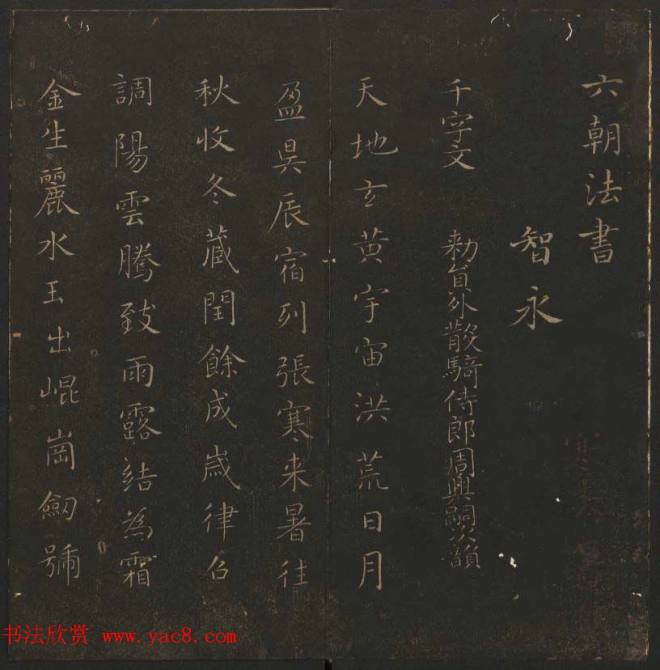 六朝法書
智永
千字文 勅員外散騎侍郎周興嗣次韻
天地玄黄宇宙洪荒日月
盈昃辰宿列張寒来暑往
秋收冬藏閏餘成歲律召
調陽雲騰致雨露結為霜
金生麗水玉出崐崗劒號
书法欣赏 www.yac8.com